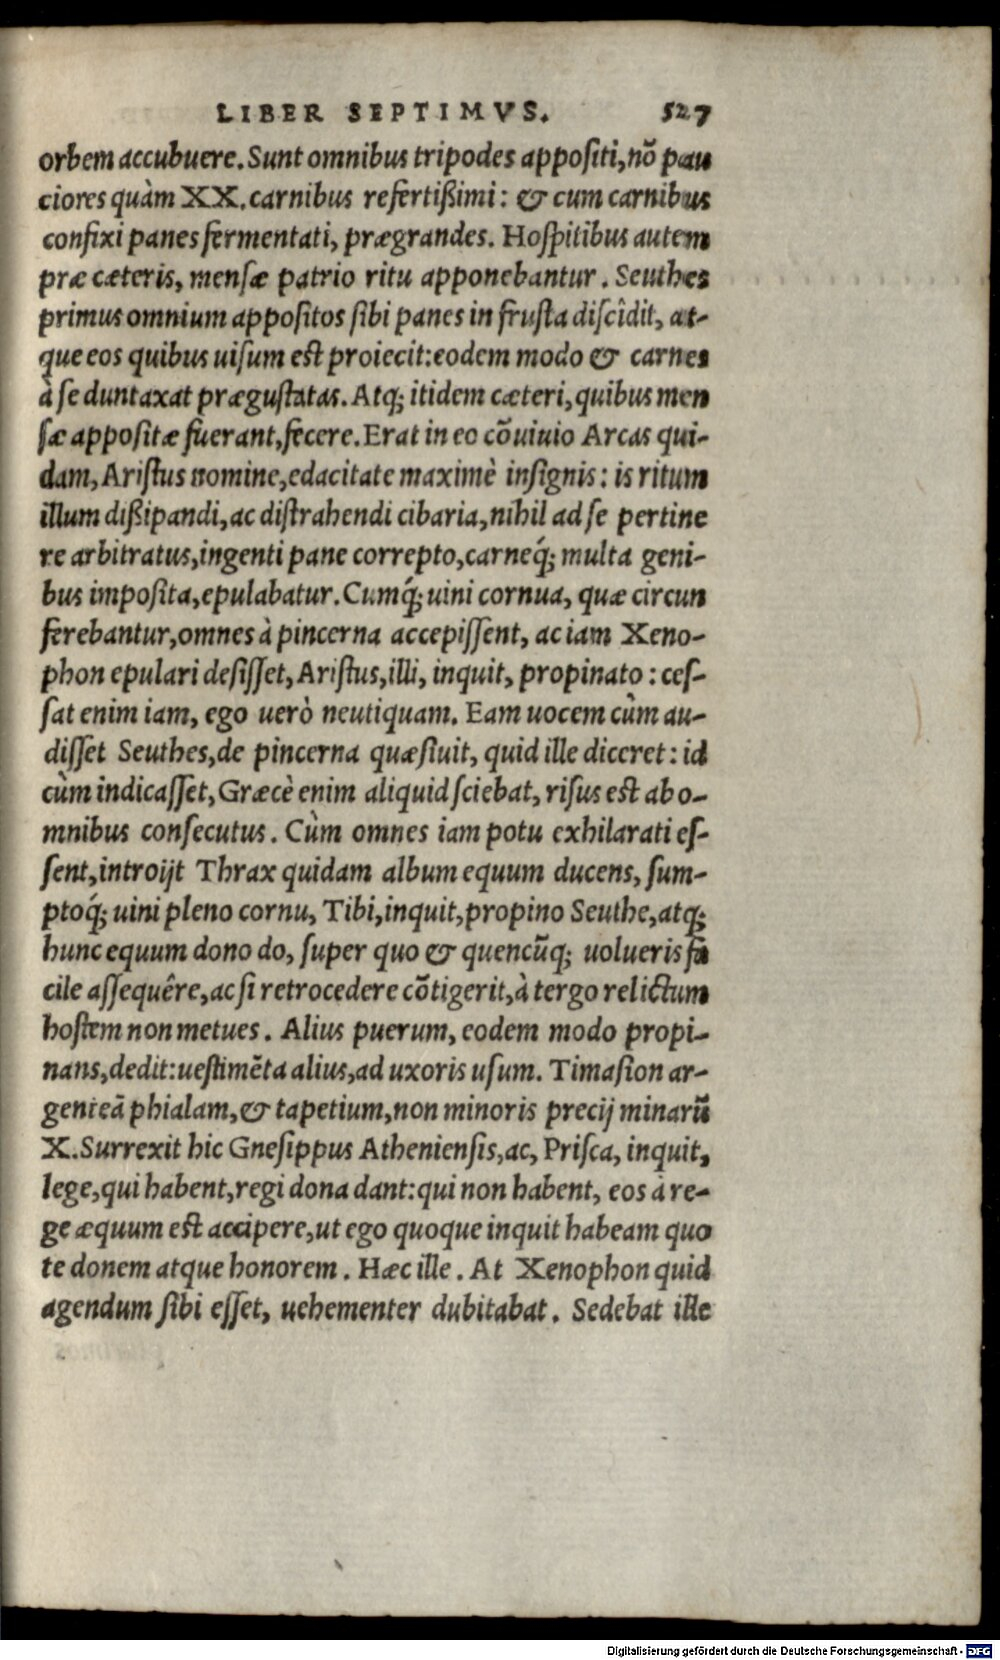 LIBER SEPTIMVS. 527
orbem accubuere. Sunt omnibus tripodes appositi, nõ pau
ciores quàm XX. carnibus refertißimi: & cum carnibus
confixi panes fermentati, prægrandes. Hospitibus autem
præ cæteris, mensæ patrio ritu apponebantur. Seuthes
primus omnium appositos sibi panes in frusta discîdit, at-
que eos quibus uisum est proiecit: eodem modo & carnes
à se duntaxat prægustatas. Atq; itidem cæteri, quibus men
sæ appositæ fuerant, fecere. Erat in eo cõuiuio Arcas qui-
dam, Aristus nomine, edacitate maximè insignis: is ritum
illum dißipandi, ac distrahendi cibaria, nihil ad se pertine
re arbitratus, ingenti pane correpto, carneq́; multa geni-
bus imposita, epulabatur. Cumq́; uini cornua, quæ circun
ferebantur, omnes à pincerna accepissent, ac iam Xeno-
phon epulari desisset, Aristus, illi, inquit, propinato: ces-
sat enim iam, ego uerò neutiquam. Eam uocem cùm au-
disset Seuthes, de pincerna quæsiuit, quid ille diceret: id
cùm indicasset, Græcè enim aliquid sciebat, risus est ab o-
mnibus consecutus. Cùm omnes iam potu exhilarati es-
sent, introijt Thrax quidam album equum ducens, sum-
ptoq́; uini pleno cornu, Tibi, inquit, propino Seuthe, atq;
hunc equum dono do, super quo & quencũq; uolueris fa
cile assequêre, ac si retrocedere cõtigerit, à tergo relictum
hostem non metues. Alius puerum, eodem modo propi-
nans, dedit: uestimẽta alius, ad uxoris usum. Timasion ar-
genteã phialam, & tapetium, non minoris precij minarũ
X. Surrexit hic Gnesippus Atheniensis, ac, Prisca, inquit,
lege, qui habent, regi dona dant: qui non habent, eos à re-
ge æquum est accipere, ut ego quoque inquit habeam quo
te donem atque honorem. Hæc ille. At Xenophon quid
agendum sibi esset, uehementer dubitabat. Sedebat ille
Digitalisierung gefördert durch die Deutsche Forschungsgemeinschaft - DFG